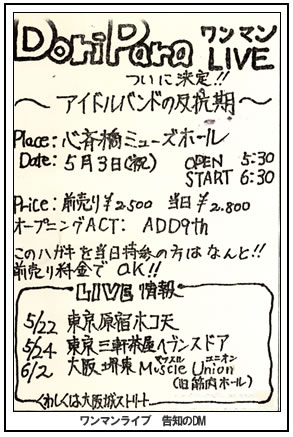 DoriPara ワンマン LIVE
ついに決定!!
〜アイドルバンドの反抗期〜
Place: 心斉橋ミューズホール
Date: 5月3日(祝) OPEN 5:30
START 6:30
Price: 前売り¥2.500 当日¥2.800
オープニングACT: ADD9th
このハガキを当日持参の方はなんと!!
前売り料金でOK!!
LIVE情報
5/22 東京原宿ホコ天
5/24 東京三軒茶屋ヘヴンスドア
6/2 大阪堺東 Muscle Union
マッスル ユニオン
(旧筋肉ホール)
くわしくは大阪城ストリート
ワンマンライブ 告知のDM